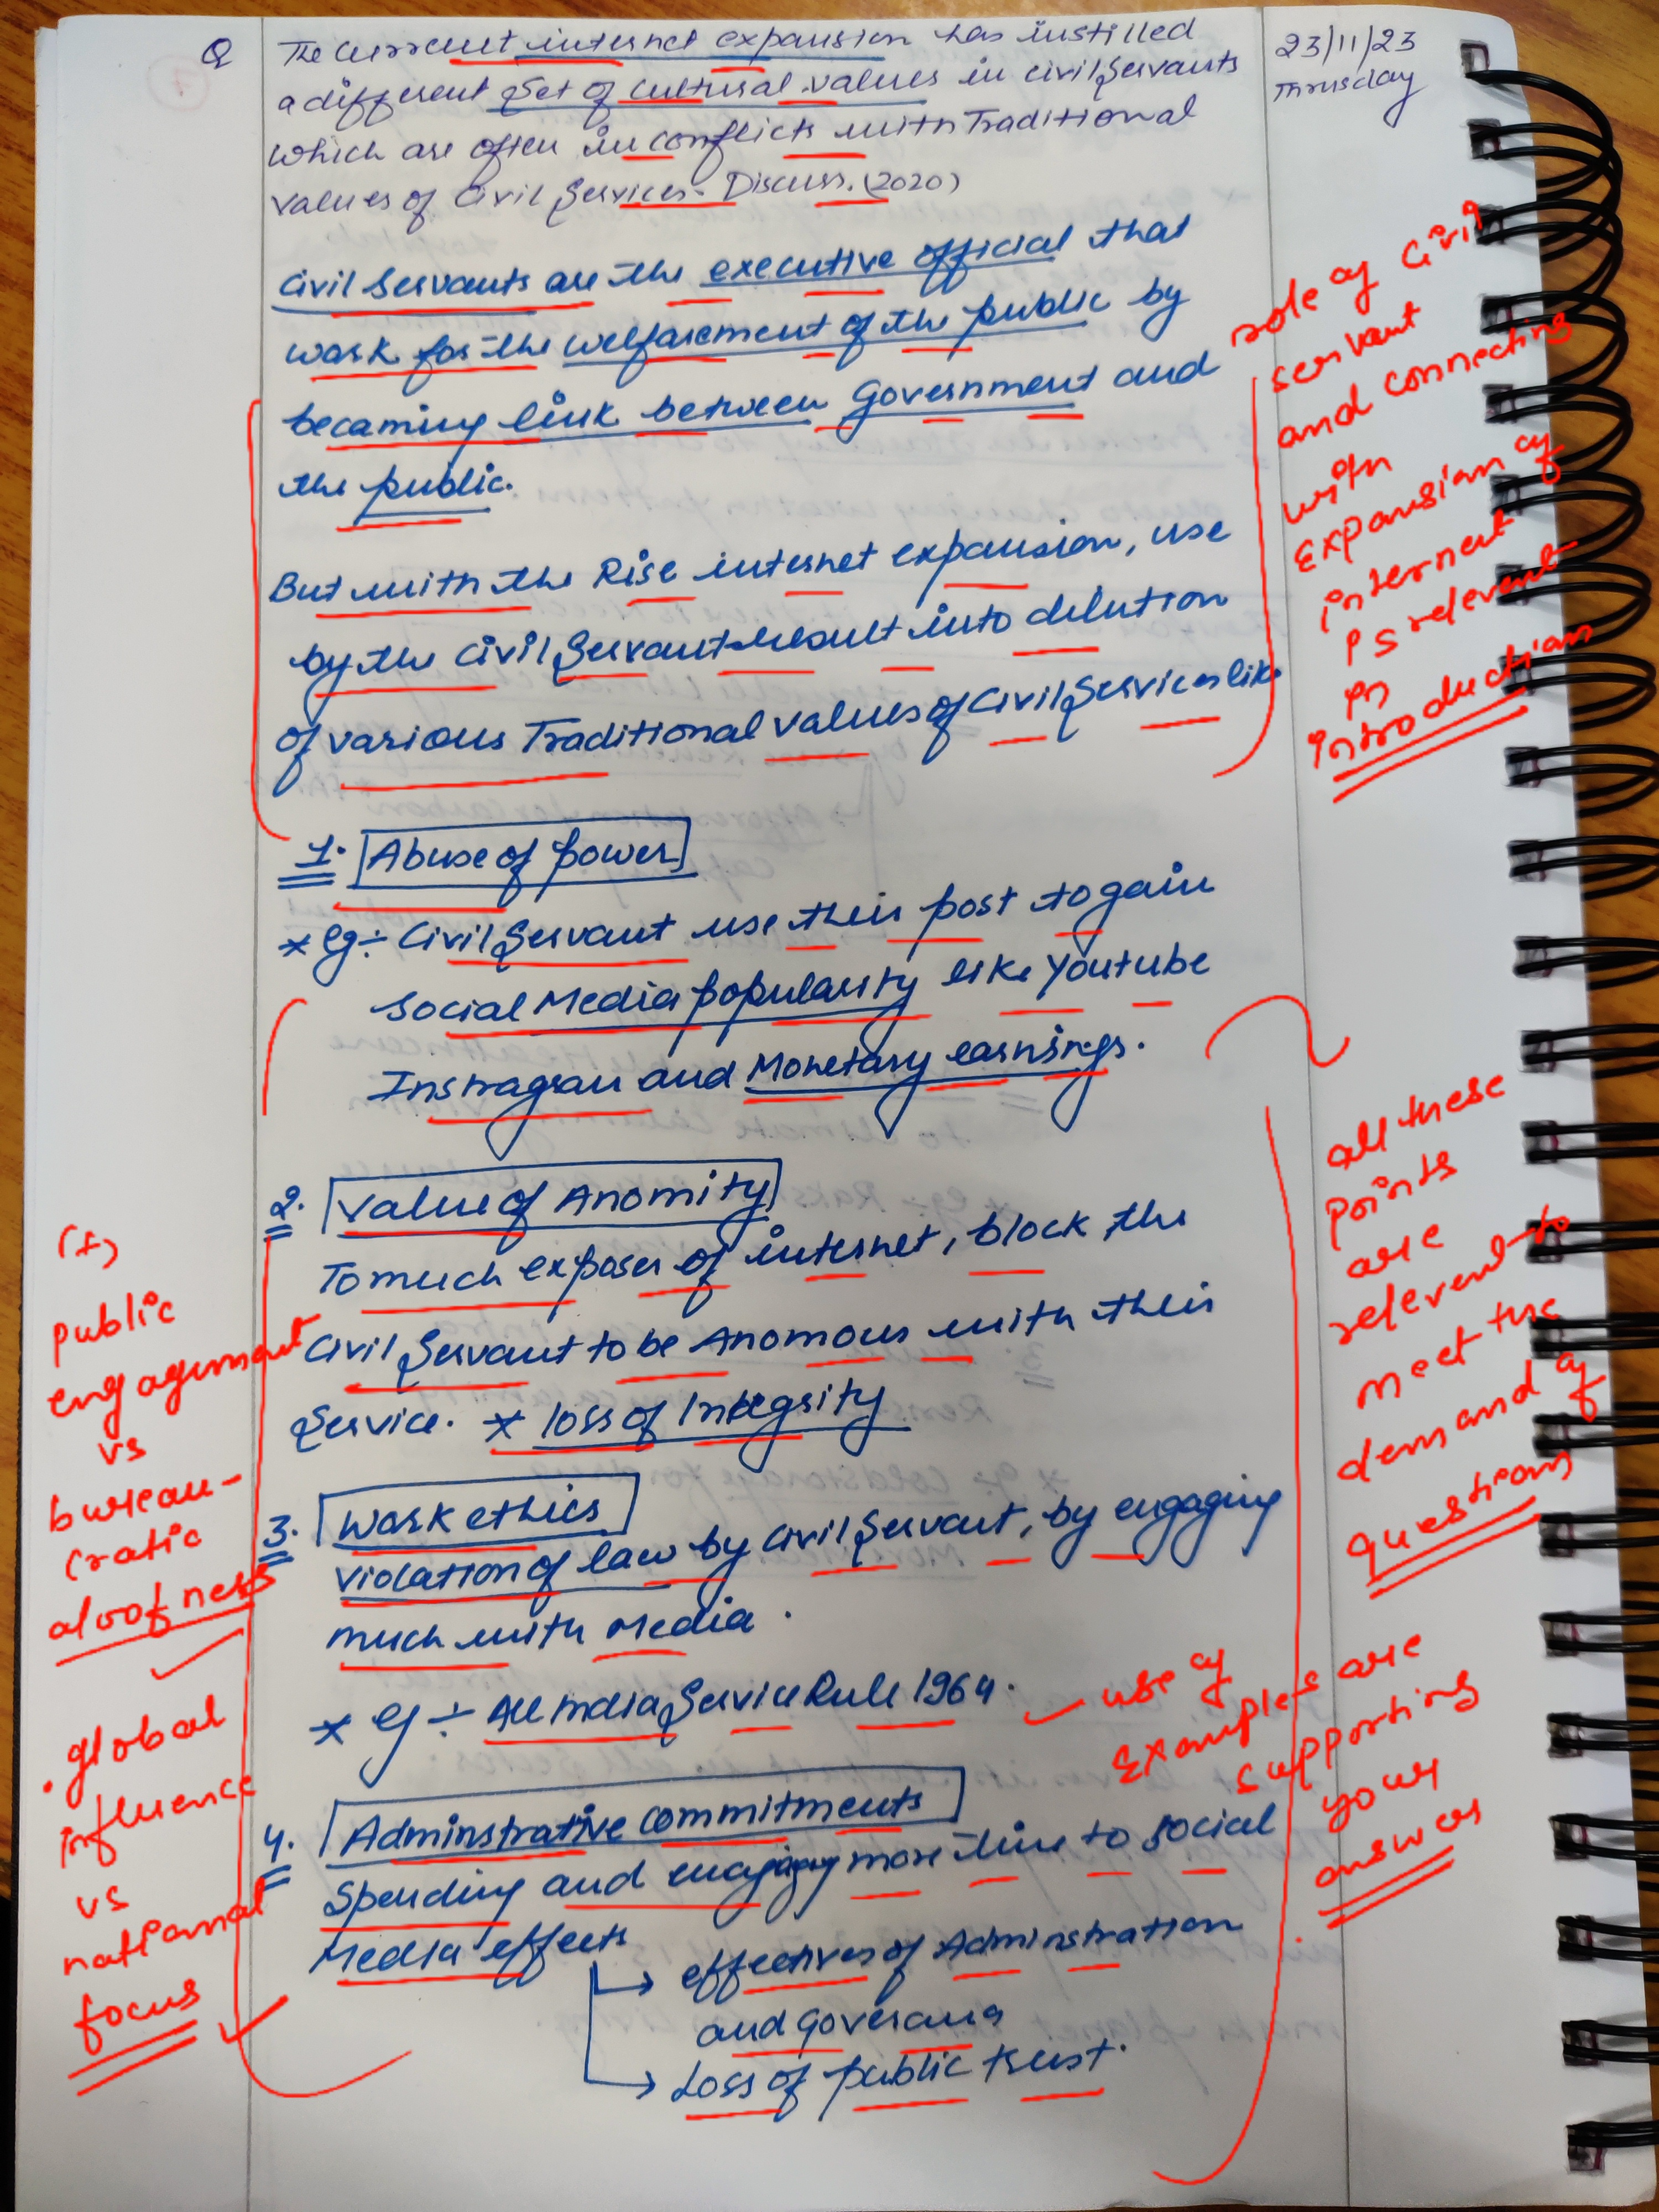 Q The current internet expansion has instilled
a different set of cultural values in civil servants
which are often in conflicts with Traditional
values of Civil Services. Discuss. (2020)
23/11/23
Thrusday
Civil Servants are the executive official that
work for the welfarement of the public by
becaming link between Government and
the public.
But with the Rise internet expansion, use
by the Civil Servant result into dilution
of various Traditional values of Civil Services like
role of Civil
servant
and connecting
with
Expansion of
internet
is relevent
in
introduction
1. Abuse of power
* Eg ÷ Civil Servant use their post to gain
Social Media popularity like Youtube
Instragram and Monetary earnings.
2. Value of Anomity
To much exposer of internet, block the
Civil Servant to be Anomous with their
Service. * loss of Integrity
3. Work ethics
Violation of law by Civil Servant, by engaging
much with Media.
* Eg ÷ All India Service Rule 1964.
4. Adminstrative Commitments
Spending and engaging more time to social
Media effects
→ effectives of Adminstration
and Goverana
→ Loss of public trust.
(+)
public
engagement
vs
bureau-
cratic
aloofness
• global
influence
vs
national
focus
all these
points
are
relevent to
meet the
demand of
questions
use of
Examples are
supporting
your
answer